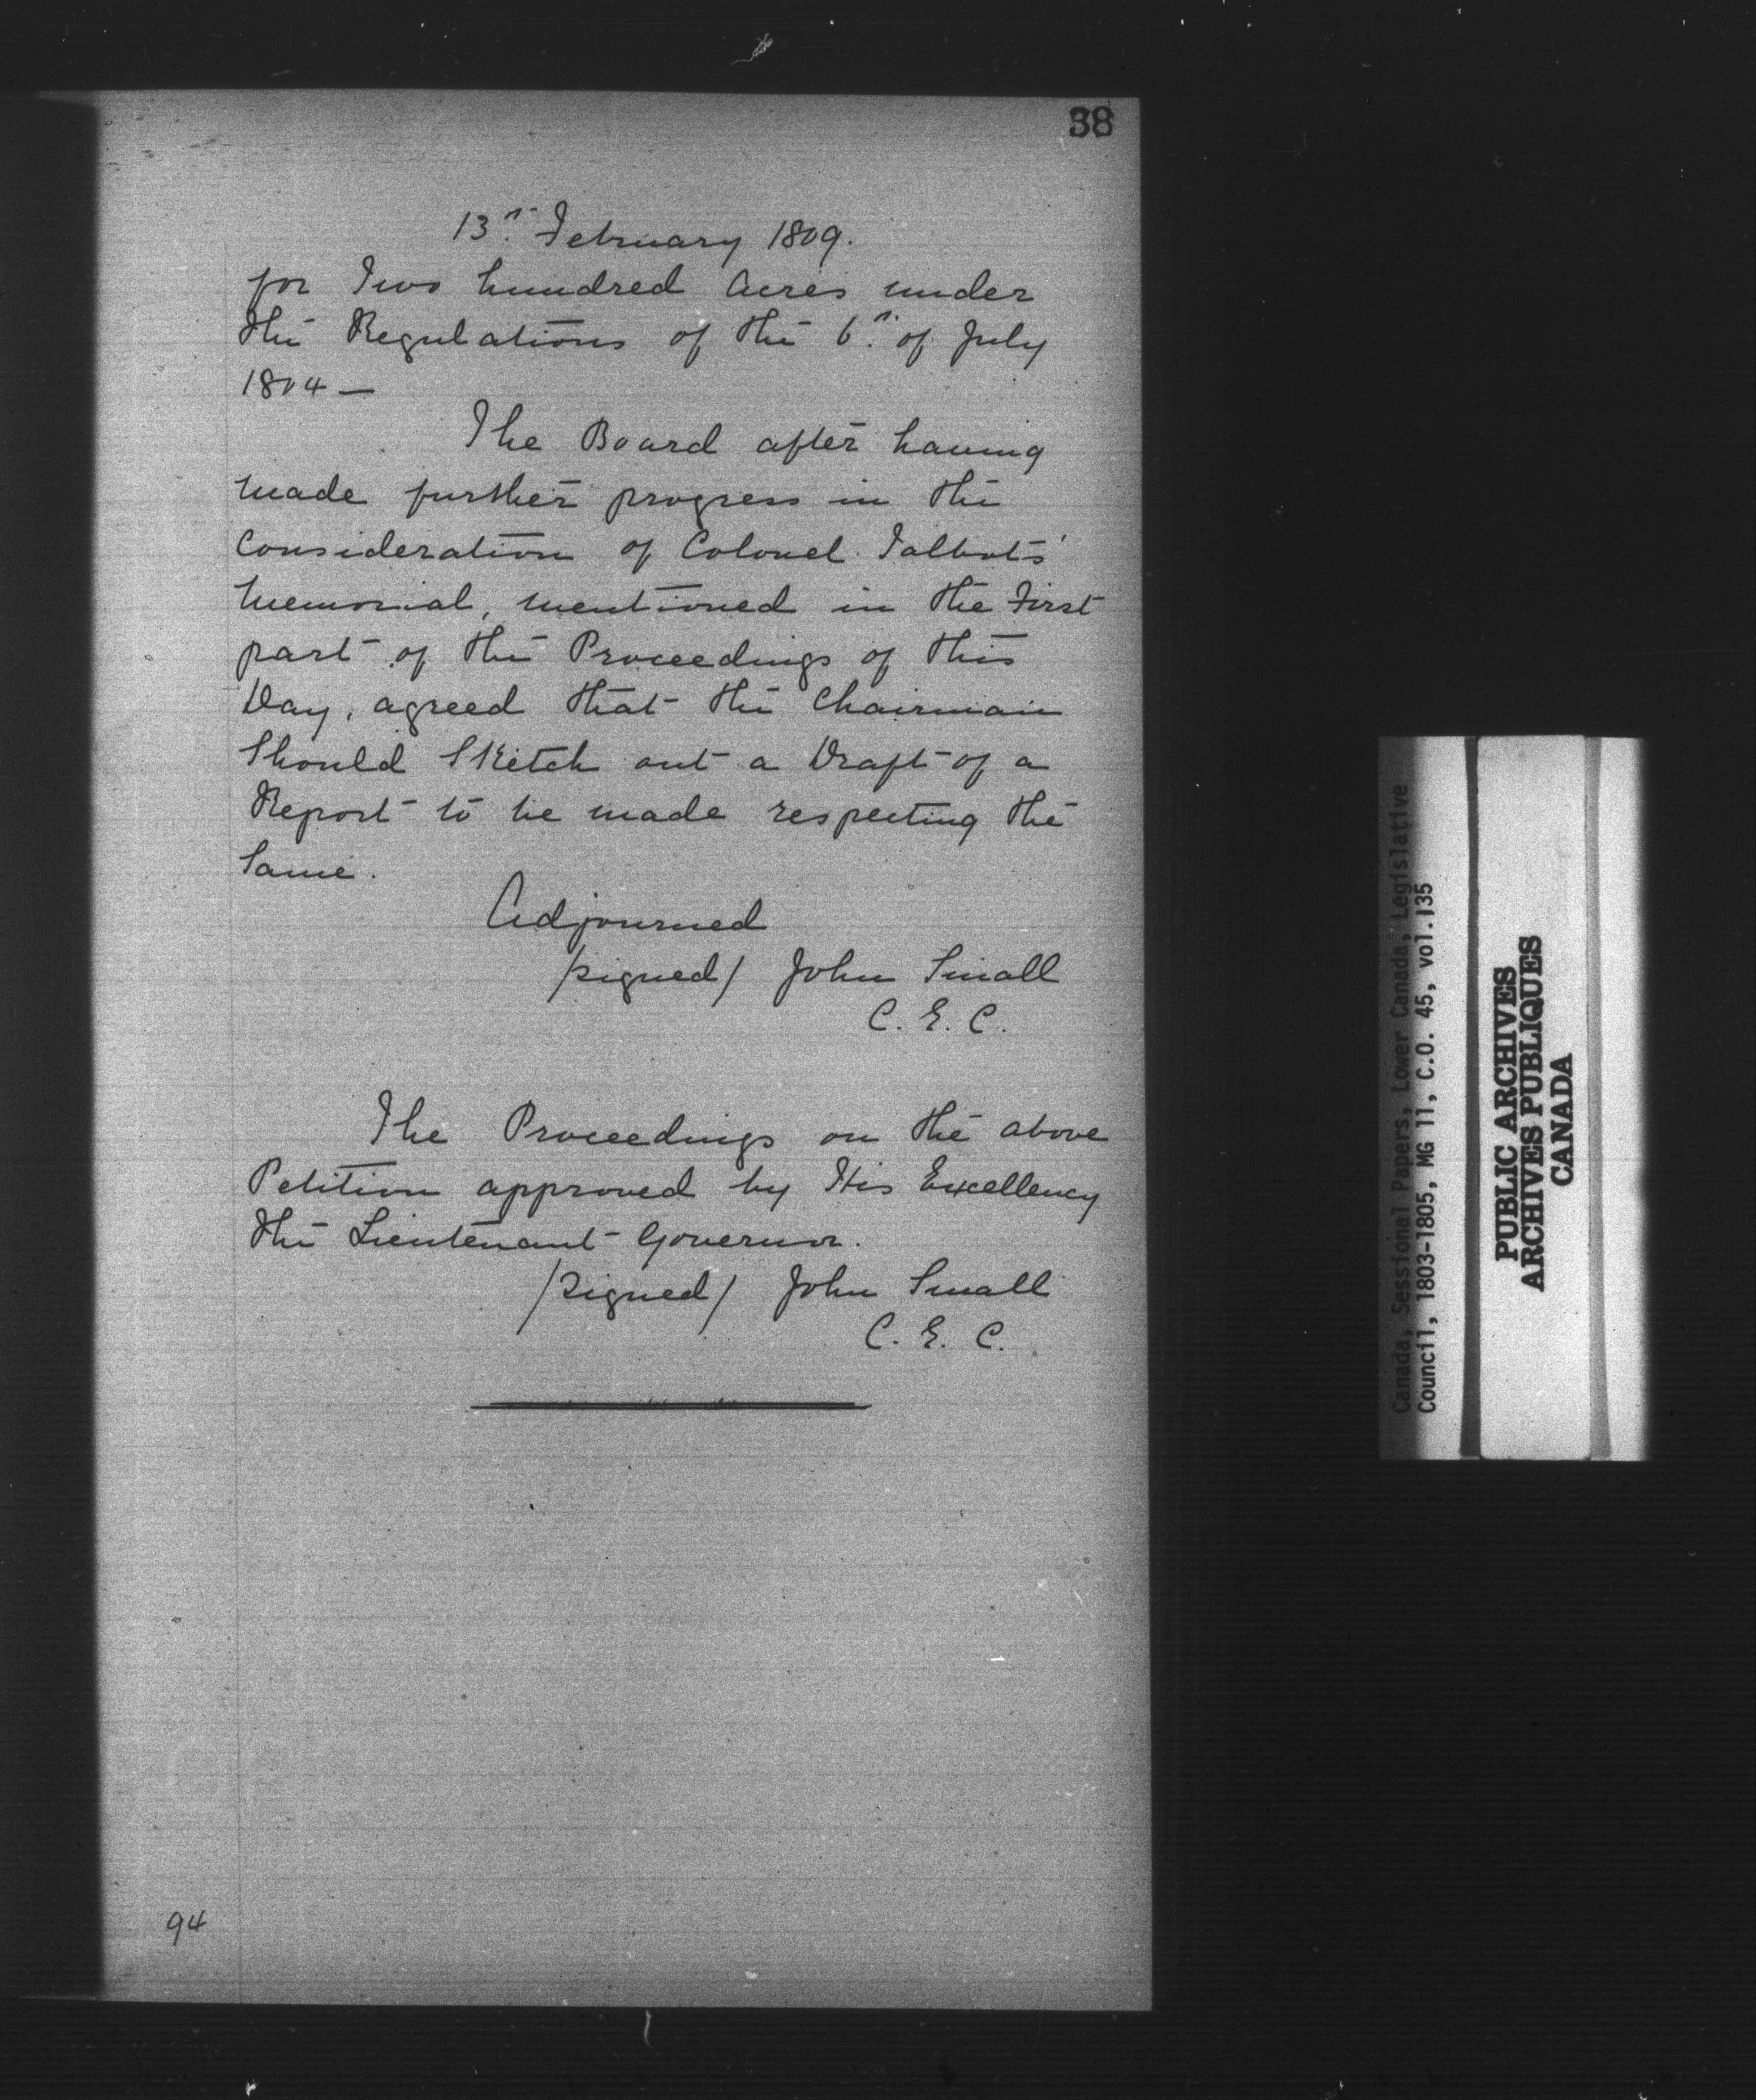 38
13th. February 1809.
for Two hundred Acres under
the Regulations of the 6th. of July
1804 —
The Board after having
made further progress in the
Consideration of Colonel Talbot's
Memorial, mentioned in the First
part of the Proceedings of this
Day, agreed that the Chairman
Should Sketch out a Draft of a
Report to be made respecting the
Same.
Adjourned
/signed/ John Small
C. E. C.
The Proceedings on the above
Petition approved by His Excellency
the Lieutenant Governor.
/signed/ John Small
C. E. C.
94
Canada, Sessional Papers, Lower Canada, Legislative
Council, 1803-1805, MG 11, C.O. 45, vol.135
PUBLIC ARCHIVES
ARCHIVES PUBLIQUES
CANADA